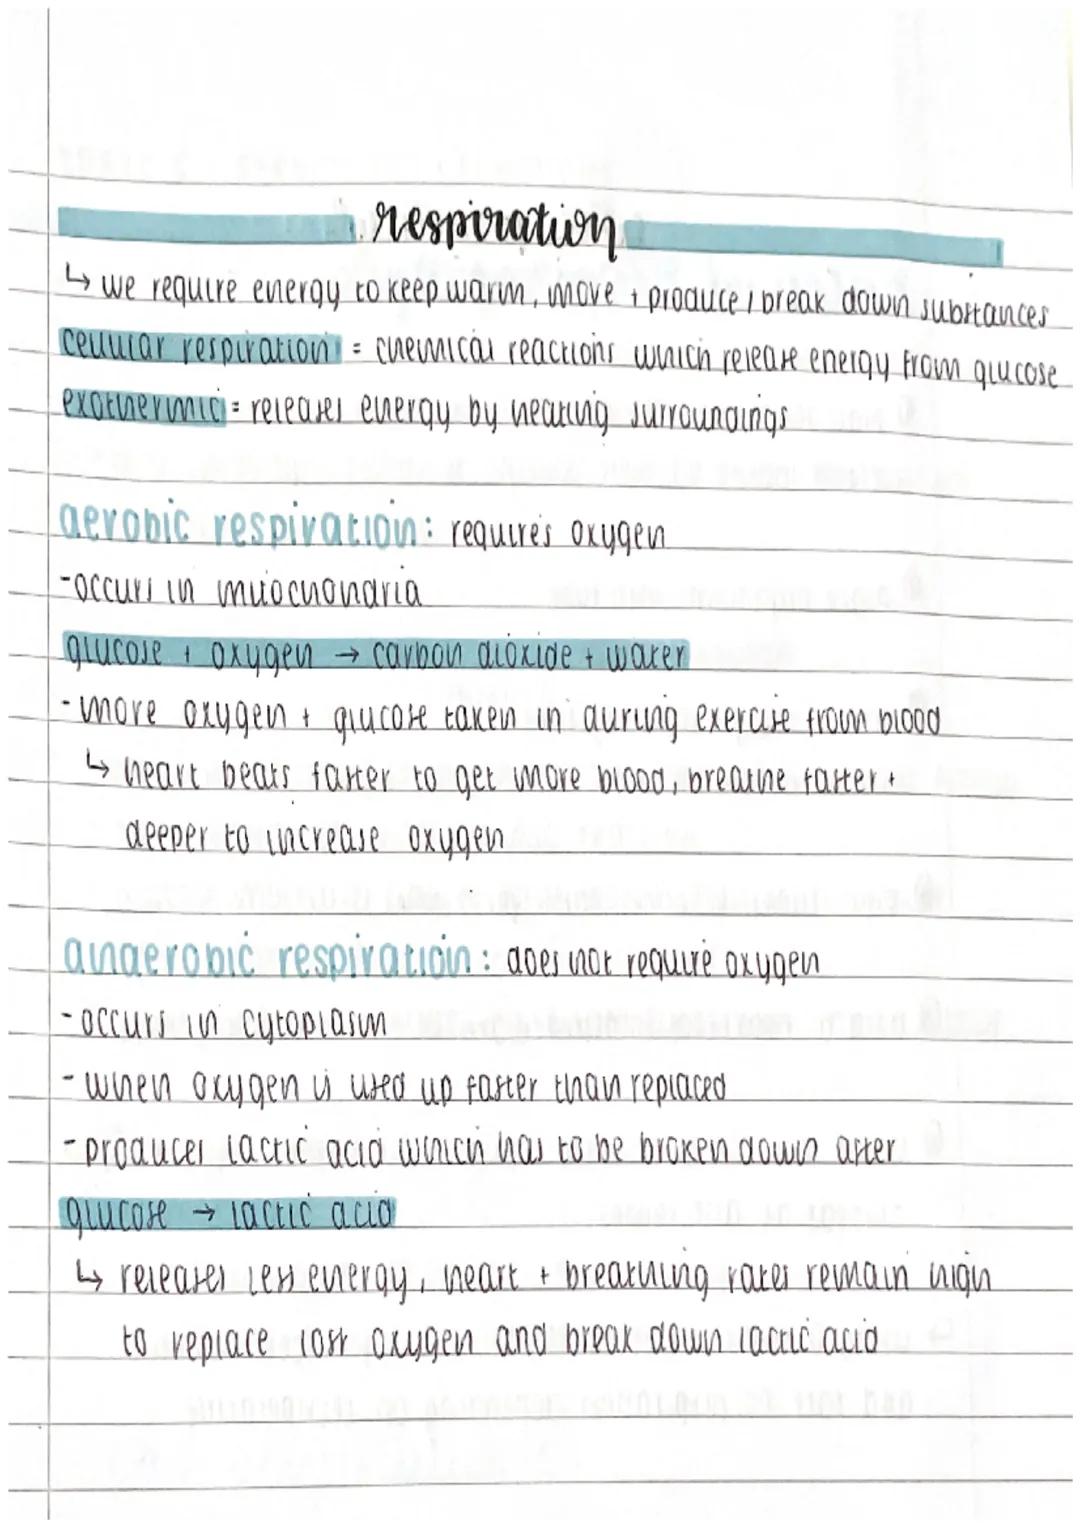 respiration
↳ we require energy to keep warm, move + produce / break down substances
cellular respiration = chemical reactions which release energy from glucose
exothermic = releases energy by heating surroundings
aerobic respiration: requires oxygen
- occurs in mitochondria
glucose + oxygen → carbon dioxide + water
- more oxygen + glucose taken in during exercise from blood
↳ heart beats faster to get more blood, breathe faster +
deeper to increase oxygen
anaerobic respiration: does not require oxygen
- occurs in cytoplasm
- when oxygen is used up faster than replaced
- produces lactic acid which has to be broken down after
glucose → lactic acid
↳ releases less energy, heart + breathing rates remain high
to replace lost oxygen and break down lactic acid